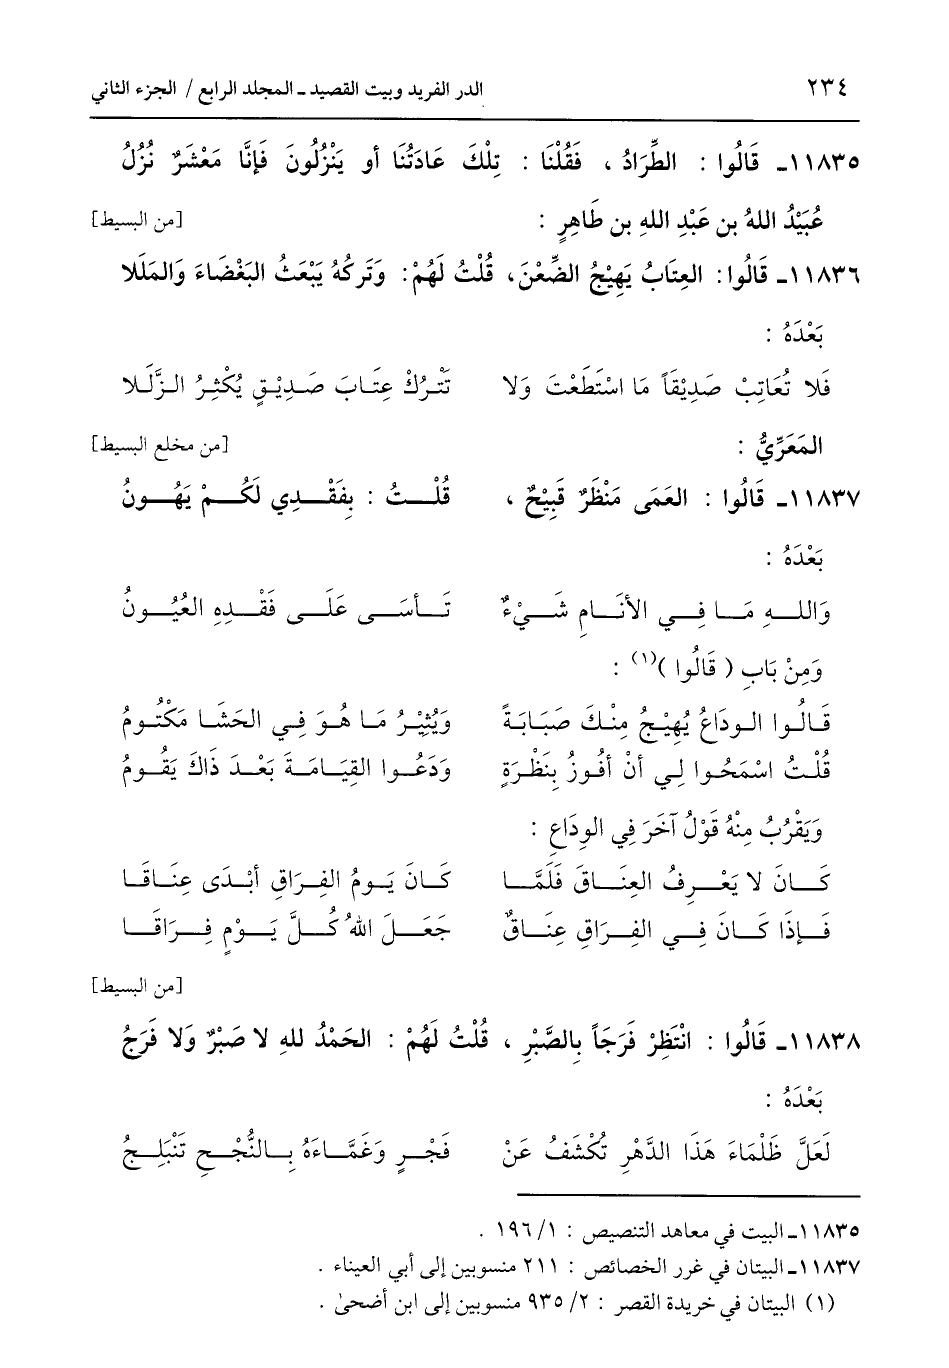 ٢٣٤ الدر الفريد وبيت القصيد ـ المجلد الرابع / الجزء الثاني
١١٨٣٥ـ قَالُوا : الطِّرَادُ ، فَقُلْنَا : تِلْكَ عَادَتُنَا أو يَنْزِلُونَ فَإِنَّا مَعْشَرٌ نُزُلُ
عُبَيْدُ اللهُ بن عَبْدِ اللهِ بن طَاهِرٍ : [من البسيط]
١١٨٣٦ـ قَالُوا : العِتَابُ يَهِيْجُ الضِّغْنَ، قُلْتُ لَهُمْ: وَتَركُهُ يَبْعَثُ البَغْضَاءَ وَالمَلَلا
بَعْدَهُ :
فَلا تُعَاتِبْ صَدِيْقَاً مَا اسْتَطَعْتَ وَلا تَتْرُكْ عِتَابَ صَدِيْقٍ يُكْثِرُ الزَّلَلا
المَعَرِّيُّ : [من مخلع البسيط]
١١٨٣٧ـ قَالُوا : العَمَى مَنْظَرٌ قَبِيْحٌ ، قُلْتُ : بِفَقْدِي لَكُمْ يَهُونُ
بَعْدَهُ :
وَاللهِ مَا فِي الأنَامِ شَيْءٌ تَأسَى عَلَى فَقْدِهِ العُيُونُ
وَمِنْ بَابِ ( قَالُوا )(١) :
قَالُوا الوِدَاعُ يُهِيْجُ مِنْكَ صَبَابَةً وَيُثِيْرُ مَا هُوَ فِي الحَشَا مَكْتُومُ
قُلْتُ اسْمَحُوا لِي أنْ أفُوزُ بِنَظْرَةٍ وَدَعُوا القِيَامَةَ بَعْدَ ذَاكَ يَقُومُ
وَيَقْرُبُ مِنْهُ قَوْلُ آخَرَ فِي الوِدَاعِ :
كَانَ لا يَعْرِفُ العِنَاقَ فَلَمَّا كَانَ يَومُ الفِرَاقِ أبْدَى عِنَاقَا
فَإذَا كَانَ فِي الفِرَاقِ عِنَاقٌ جَعَلَ اللهُ كُلَّ يَوْمٍ فِرَاقَا
[من البسيط]
١١٨٣٨ـ قَالُوا : انْتَظِرْ فَرَجَاً بِالصَّبْرِ ، قُلْتُ لَهُمْ : الحَمْدُ للهِ لا صَبْرٌ وَلا فَرَجُ
بَعْدَهُ :
لَعَلَّ ظَلْمَاءَ هَذَا الدَّهْرِ تُكْشَفُ عَنْ فَجْرٍ وَغَمَّاءَهُ بِالنُّجْحِ تَنْبَلِجُ
١١٨٣٥ـ البيت في معاهد التنصيص : ١/ ١٩٦ .
١١٨٣٧ـ البيتان في غرر الخصائص : ٢١١ منسوبين إلى أبي العيناء .
(١) البيتان في خريدة القصر : ٢/ ٩٣٥ منسوبين إلى ابن أضحىٰ .